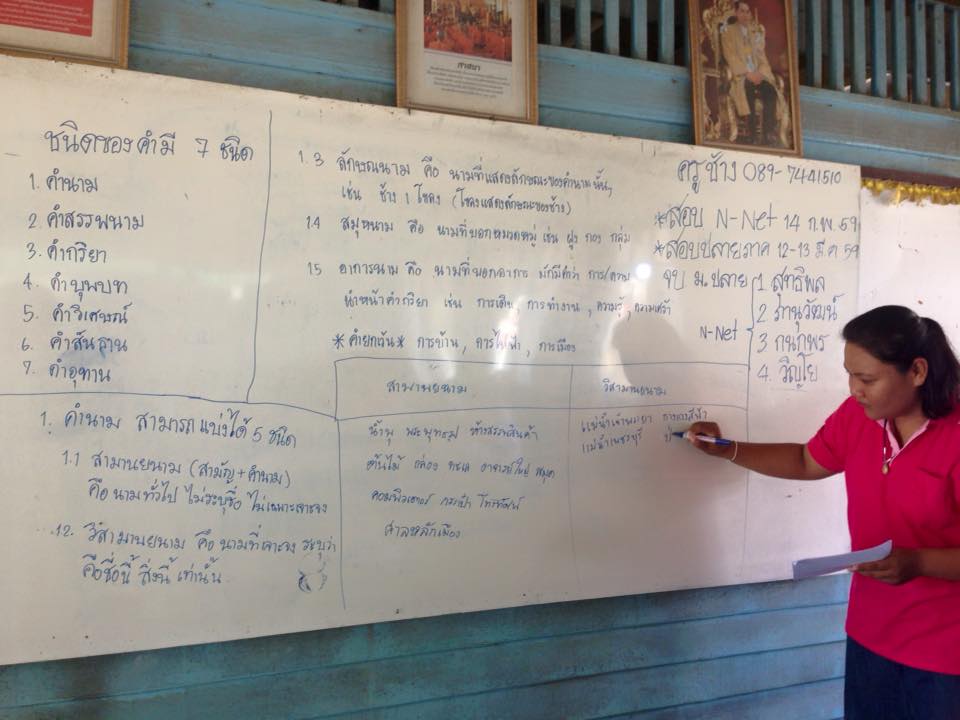 ศาสนา
ชนิดของคำมี 7 ชนิด
1. คำนาม
2 คำสรรพนาม
3. คำกริยา
4. คำบุพบท
5. คำวิเศษณ์
6. คำสันธาน
7. คำอุทาน
1. คำนาม สามารถแบ่งได้ 5 ชนิด
1.1 สามานยนาม (สามัญ+คำนาม)
คือนามทั่วไป ไม่ระบุชื่อ ไม่เฉพาะเจาะจง
1.2. วิสามานยนาม คือนามที่เจาะจง ระบุว่า
คือชื่อนี้ สิ่งนี้ เท่านั้น
1.3 ลักษณนาม คือ นามที่แสดงลักษณะของคำนามนั้นๆ
เช่น ช้าง 1 โขลง (โขลงแสดงลักษณะของช้าง)
1.4 สมุหนาม คือ นามที่บอกหมวดหมู่ เช่น ฝูง กอง กลุ่ม
1.5 อาการนาม คือ นามที่บอกอาการ มักมีคำว่า การ/ความ
นำหน้าคำกริยา เช่น การเดิน, การทำงาน, ความรู้, ความเศร้า
*คำยกเว้น* การบ้าน, การไฟฟ้า, การเมือง
สามานยนาม
น้ำพุ พระพุทธรูป ห้างสรรพสินค้า
ต้นไม้ กล่อง ทะเล อาจารย์ใหญ่ สมุด
คอมพิวเตอร์ กระเป๋า โทรทัศน์
ศาลหลักเมือง
วิสามานยนาม
แม่น้ำเจ้าพระยา กางเกงสีฟ้า
แม่น้ำเพชรบุรี
ครูช้าง 089-7441510
*สอบ N-Net 14 ก.พ. 59
*สอบปลายภาค 12-13 มี.ค 59
จบ ม.ปลาย
N-Net
1 สุทธิพล
2 ภานุวัฒน์
3 กนกพร
4. วิญโย